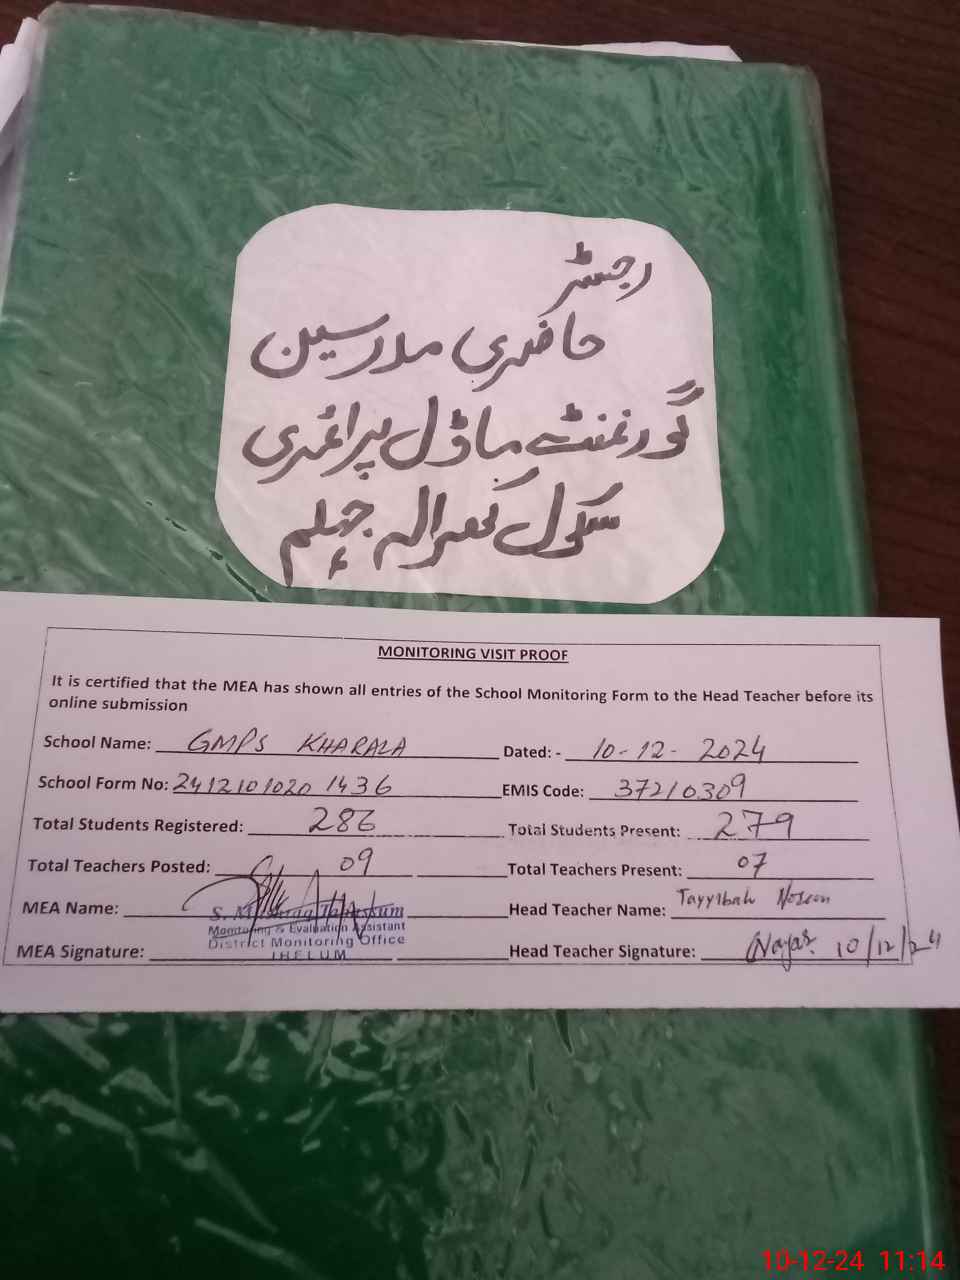 رجسٹر
حاضری مدرسین
گورنمنٹ ماڈل پرائمری
سکول کھرالہ جہلم
MONITORING VISIT PROOF
It is certified that the MEA has shown all entries of the School Monitoring Form to the Head Teacher before its
online submission
School Name: GMPS KHARALA Dated: - 10-12-2024
School Form No: 24121010201436 EMIS Code: 37210309
Total Students Registered: 286 Total Students Present: 279
Total Teachers Posted: 09 Total Teachers Present: 07
MEA Name: Head Teacher Name: Tayyibah Noreen
Monitoring & Evaluation Assistant
District Monitoring Office
JHELUM
MEA Signature: Head Teacher Signature: 10/12/24
10-12-24 11:14